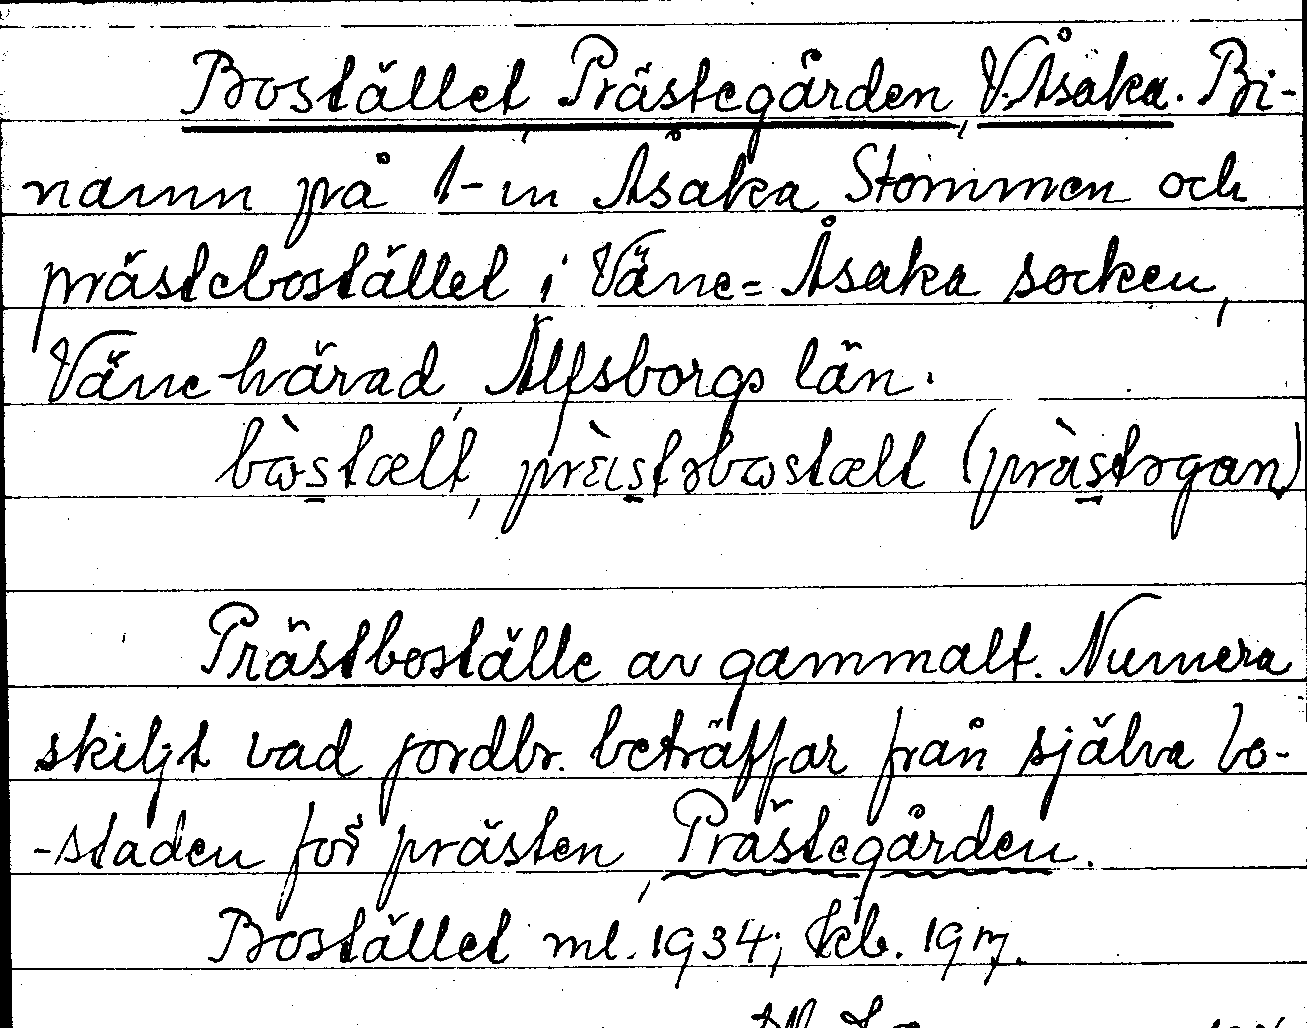 Bostället, Prästegården, V.Åsaka. Bi-
namn på 1-m Åsaka Stommen och
prästebostället i Väne=Åsaka socken,
Väne härad, Älfsborgs län.
Prästboställe av gammalt. Numera
skiljt vad jordbr. beträffar från själva bo-
-staden för prästen, Prästegården.
Bostället ml. 1934; kb. 1917.